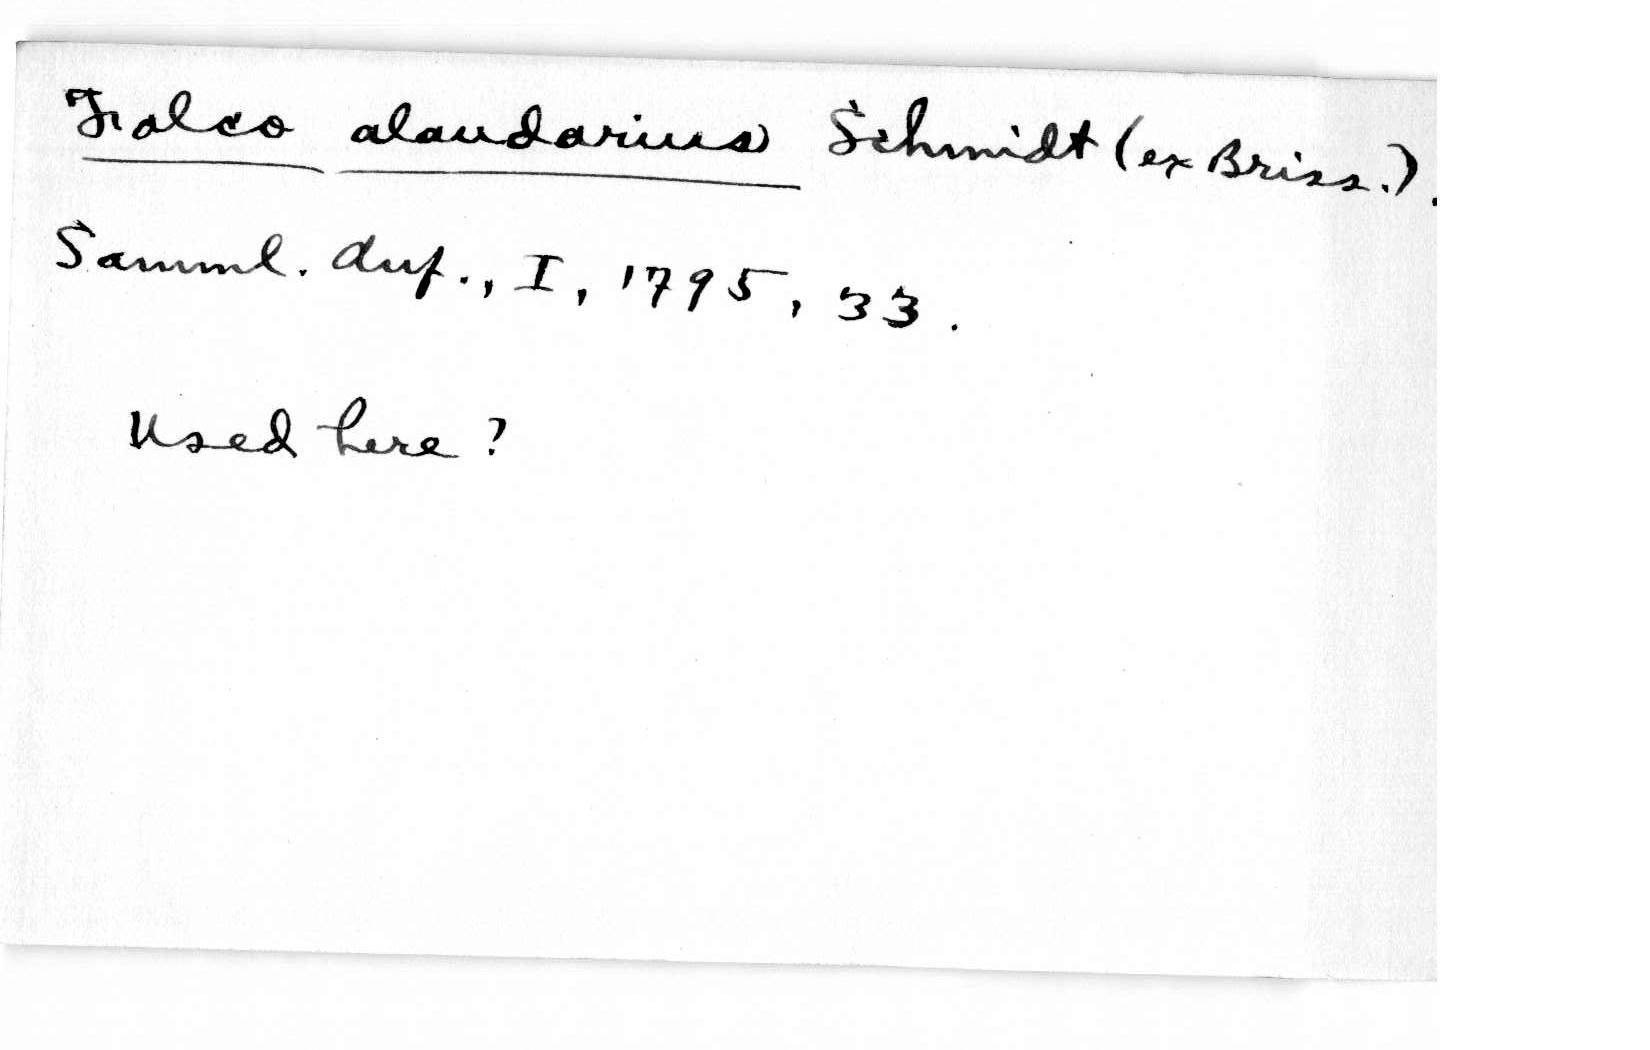 Falco alaudarius Schmidt (ex Briss.).
Samml. Auf., I, 1795, 33.
Used here?